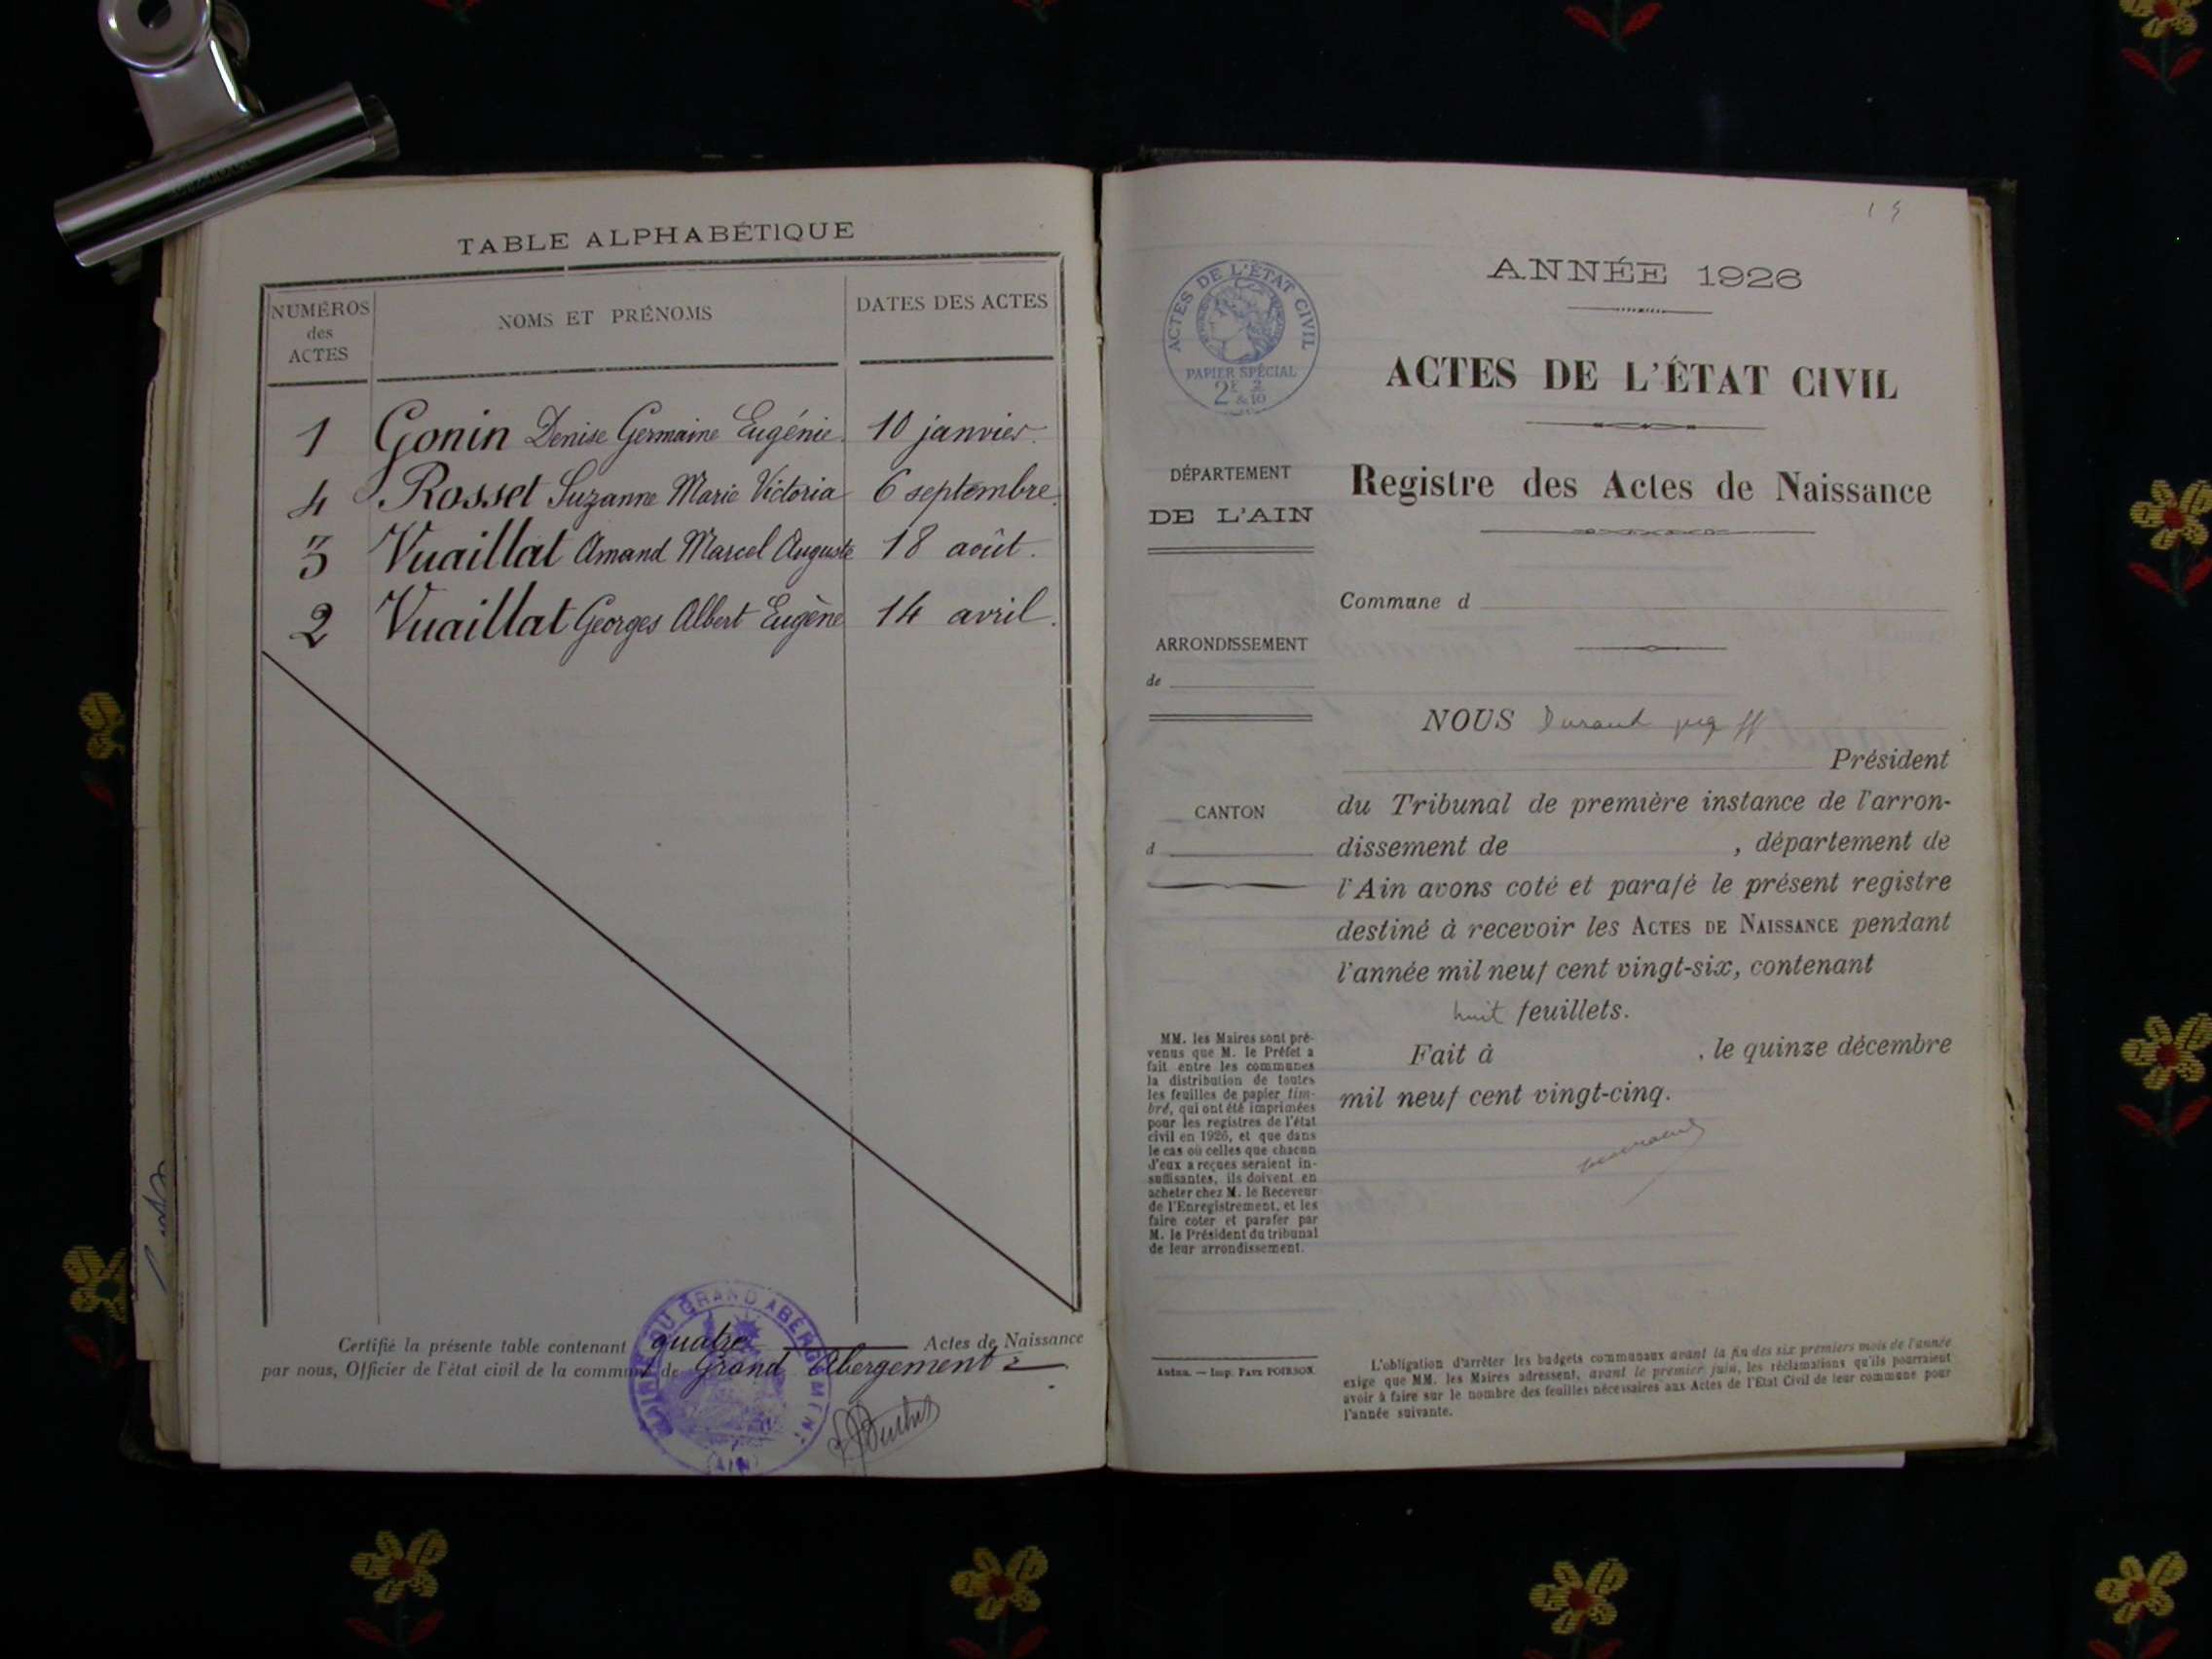 TABLE ALPHABÉTIQUE
NUMÉROS des ACTES
NOMS ET PRÉNOMS
DATES DES ACTES
1 Gonin Denise Germaine Eugénie 10 janvier.
4 Rosset Suzanne Marie Victoria 6 septembre.
3 Vuaillat Amand Marcel Auguste 18 août.
2 Vuaillat Georges Albert Eugène 14 avril.
Certifié la présente table contenant quatre Actes de Naissance
par nous, Officier de l'état civil de la commune de Grand Abergement
MAIRIE DU GRAND ABERGEMENT
(AIN)
ANNÉE 1926
ACTES DE L'ÉTAT CIVIL
PAPIER SPÉCIAL
ACTES DE L'ÉTAT CIVIL
Registre des Actes de Naissance
DÉPARTEMENT
DE L'AIN
Commune d
ARRONDISSEMENT
de
NOUS Durand
Président
CANTON
d
du Tribunal de première instance de l'arron-
dissement de , département de
l'Ain avons coté et parafé le présent registre
destiné à recevoir les ACTES DE NAISSANCE pendant
l'année mil neuf cent vingt-six, contenant
huit feuillets.
Fait à , le quinze décembre
mil neuf cent vingt-cinq.
MM. les Maires sont pré-
venus que M. le Préfet a
fait entre les communes
la distribution de toutes
les feuilles de papier tim-
bré, qui ont été imprimées
pour les registres de l'état
civil en 1926, et que dans
le cas où celles que chacun
d'eux a reçues seraient in-
suffisantes, ils doivent en
acheter chez M. le Receveur
de l'Enregistrement, et les
faire coter et parafer par
M. le Président du tribunal
de leur arrondissement.
L'obligation d'arrêter les budgets communaux avant la fin des six premiers mois de l'année
exige que MM. les Maires adressent, avant le premier juin, les réclamations qu'ils pourraient
avoir à faire sur le nombre des feuilles nécessaires aux Actes de l'Etat Civil de leur commune pour
l'année suivante.